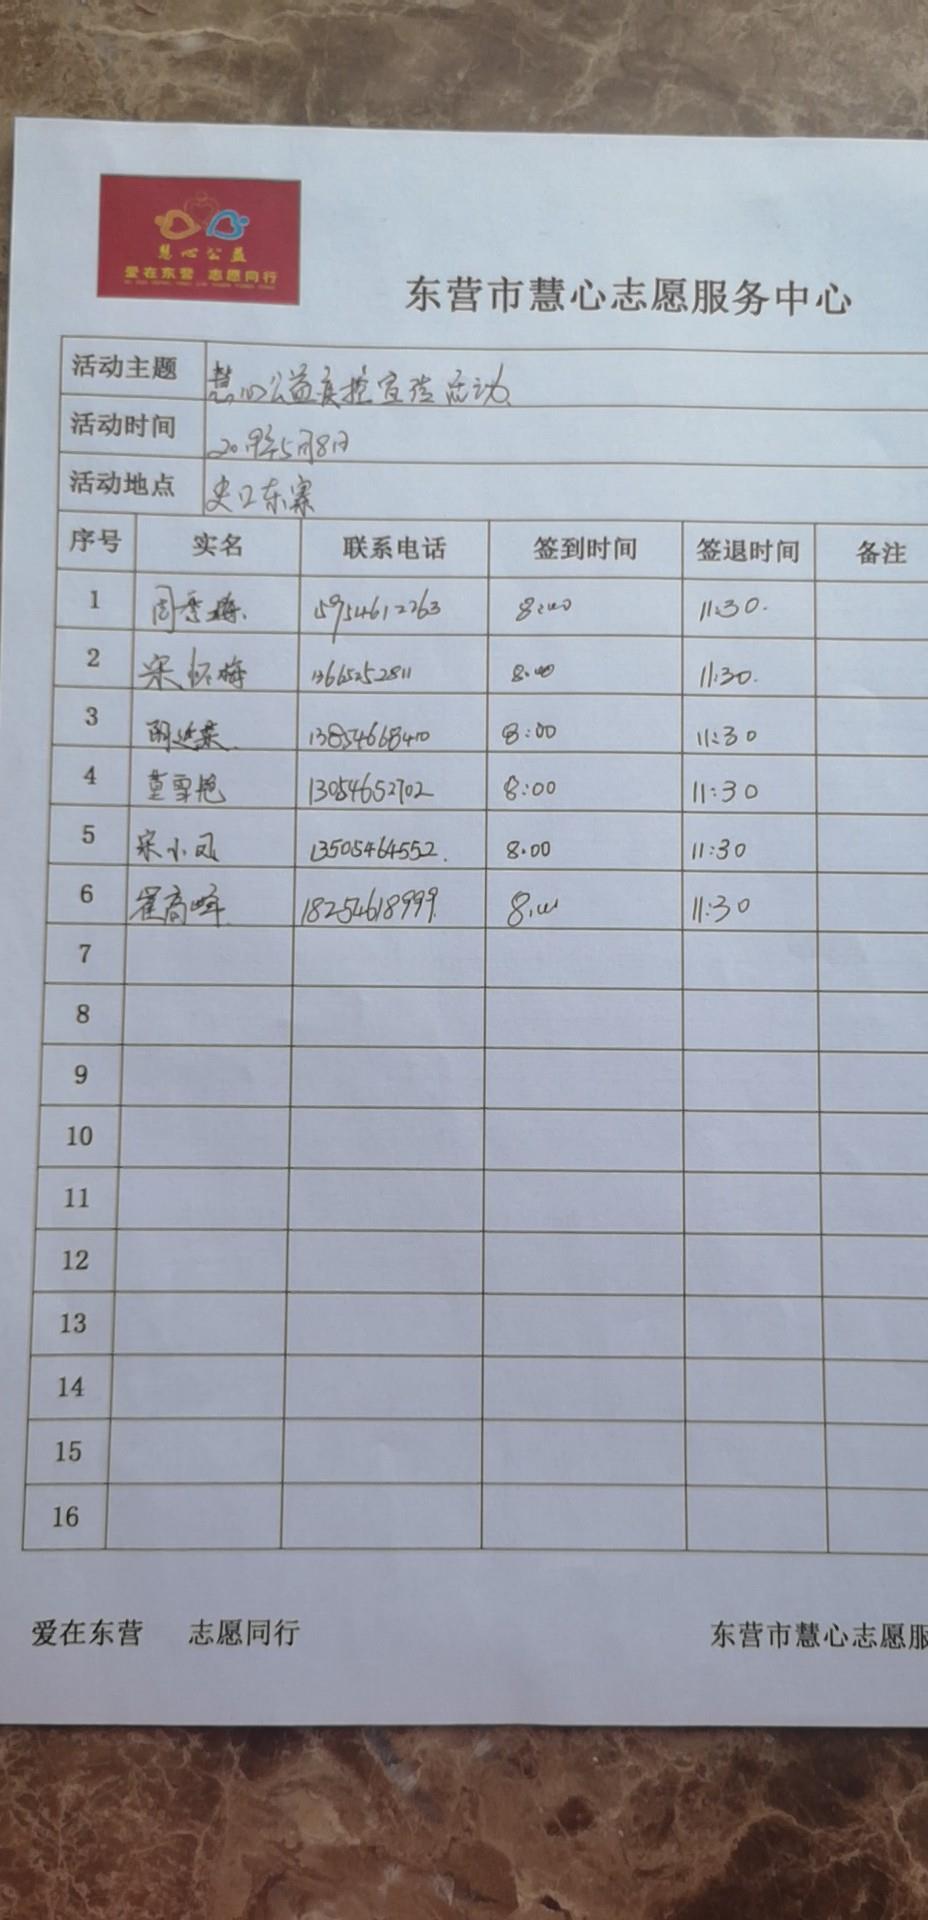 慧心公益
爱在东营 志愿同行
东营市慧心志愿服务中心
活动主题 慧心公益疾控宣传活动
活动时间 2019年5月8日
活动地点 史口东寨
序号 实名 联系电话 签到时间 签退时间 备注
1 15954612263 8:00 11:30.
2 宋怀梅 13665252811 8:00 11:30.
3 13854668410 8:00 11:30
4 董雪艳 13054652702 8:00 11:30
5 宋小凤 13505464552. 8:00 11:30
6 崔高峰 18254618999 8:00 11:30
7
8
9
10
11
12
13
14
15
16
爱在东营 志愿同行 东营市慧心志愿服